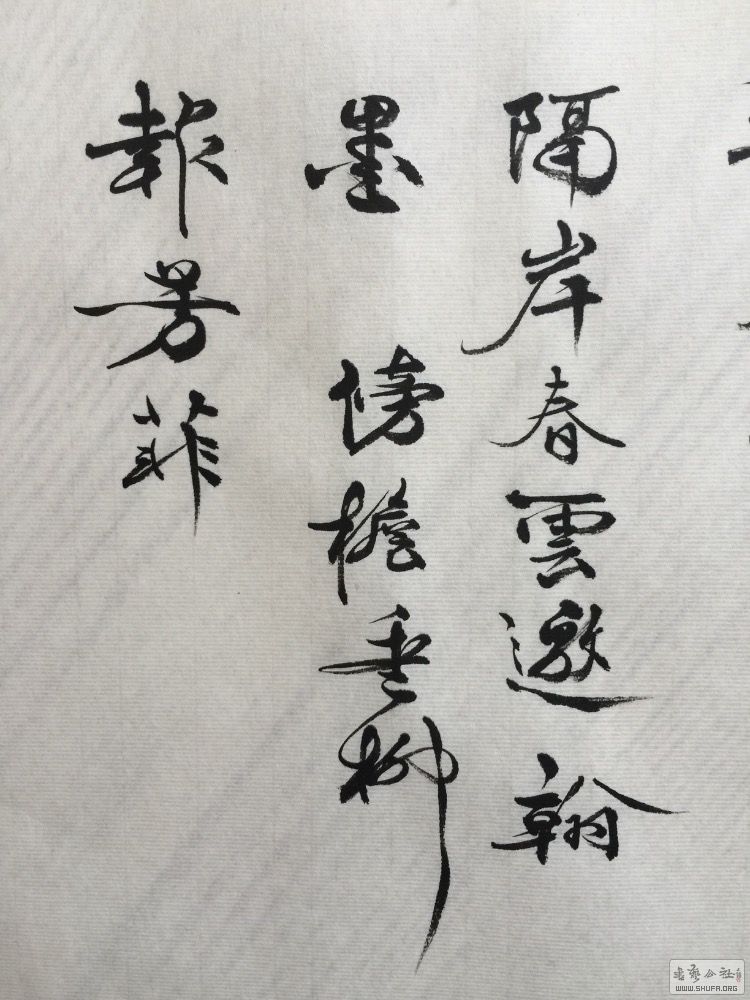 隔岸春雲邀翰
墨 傍檐垂柳
報芳菲
书艺公社
WWW.SHUFA.ORG